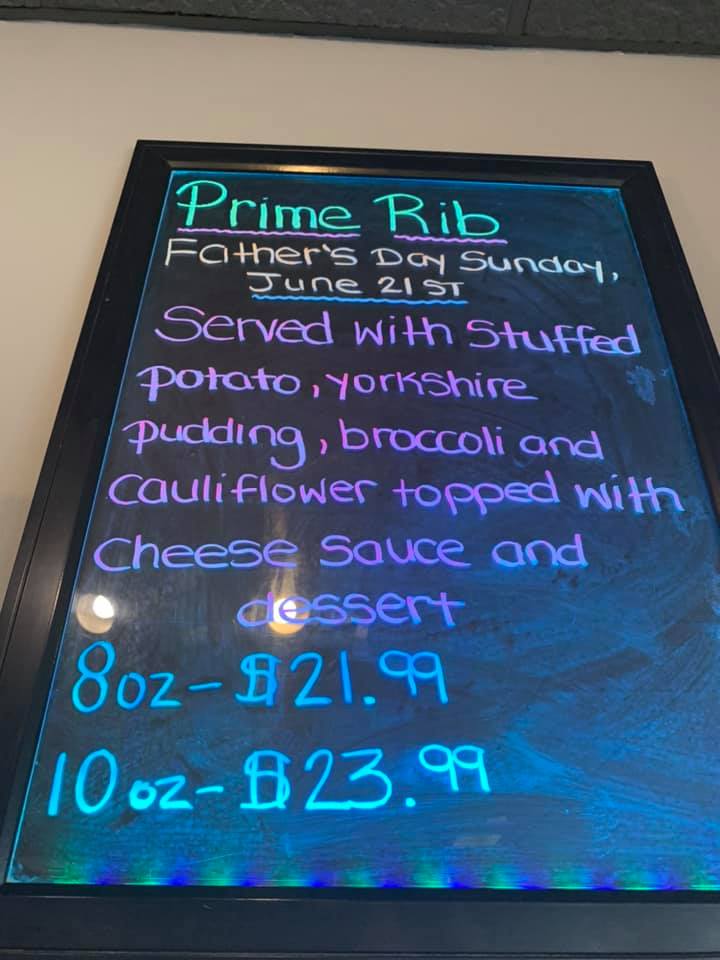 Prime Rib
Father's Day Sunday,
June 21 ST
Served with Stuffed
potato, yorkshire
pudding, broccoli and
Cauliflower topped with
Cheese Sauce and
dessert
8oz - $21.99
10 oz - $23.99